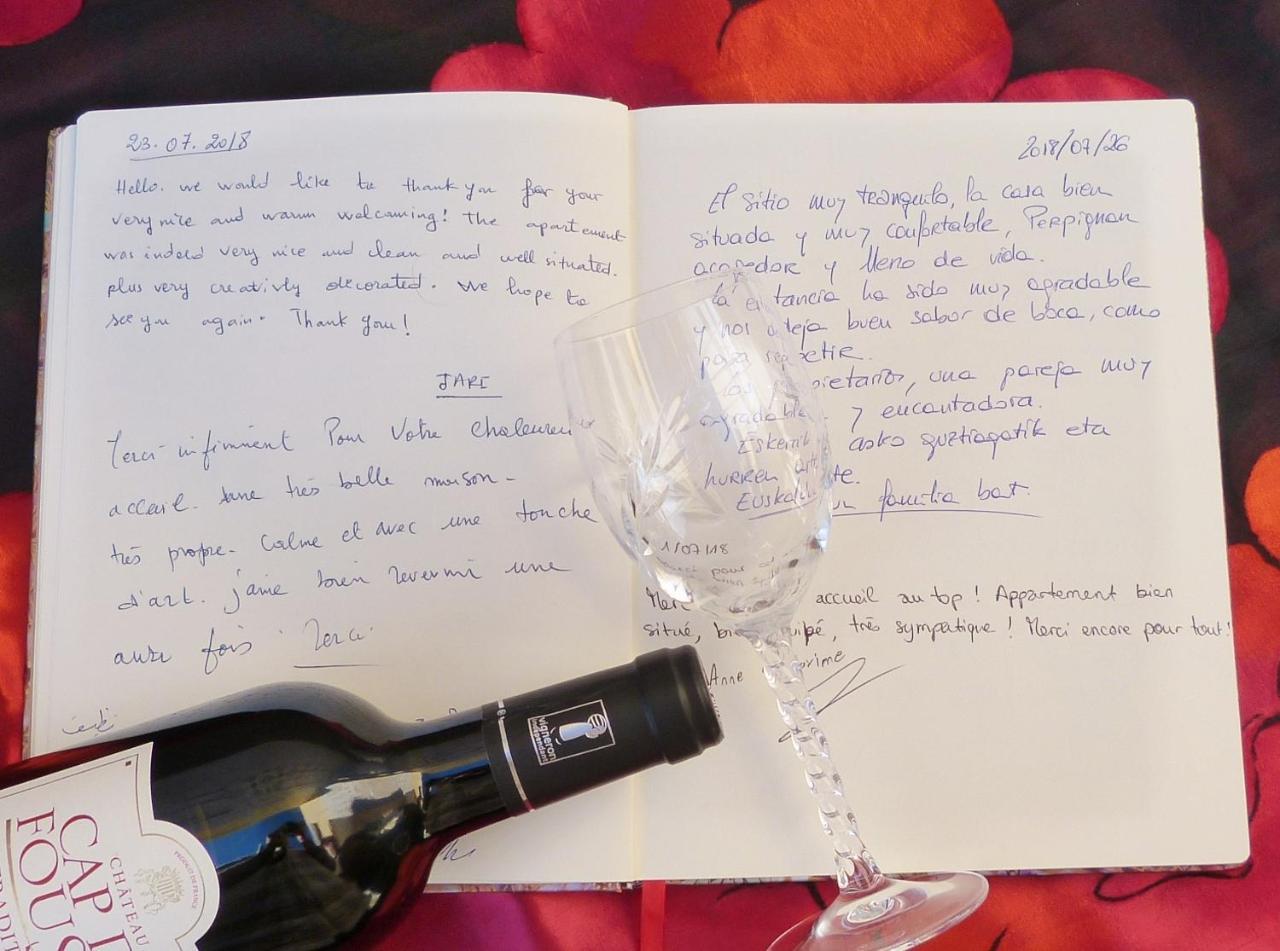 23.07.2018
Hello. we would like to thank you for your
very nice and warm welcoming! The apartement
was indeed very nice and clean and well situated.
plus very creativly decorated. We hope to
see you again. Thank you!
JARI
Merci infiniment Pour Votre chaleureux
accueil. une très belle maison -
très propre. Calme et avec une touche
d'art. j'aime bien revermi une
autre fois. Merci
2018/07/26
El sitio muy tranquilo, la casa bien
situada y muy confortable, Perpignan
acogedor y lleno de vida.
La estancia ha sido muy agradable
y nos deja buen sabor de boca, como
para repetir.
Los propietarios, una pareja muy
agradable y encantadora.
Eskerrik asko guztiagatik eta
hurren arte.
Euskaldun familia bat.
1/07/18
Merci accueil au top ! Appartement bien
situé, bien équipé, très sympathique ! Merci encore pour tout!
Anne
vigneron
indépendant
CHÂTEAU
CAP
FOUS
TRADIT